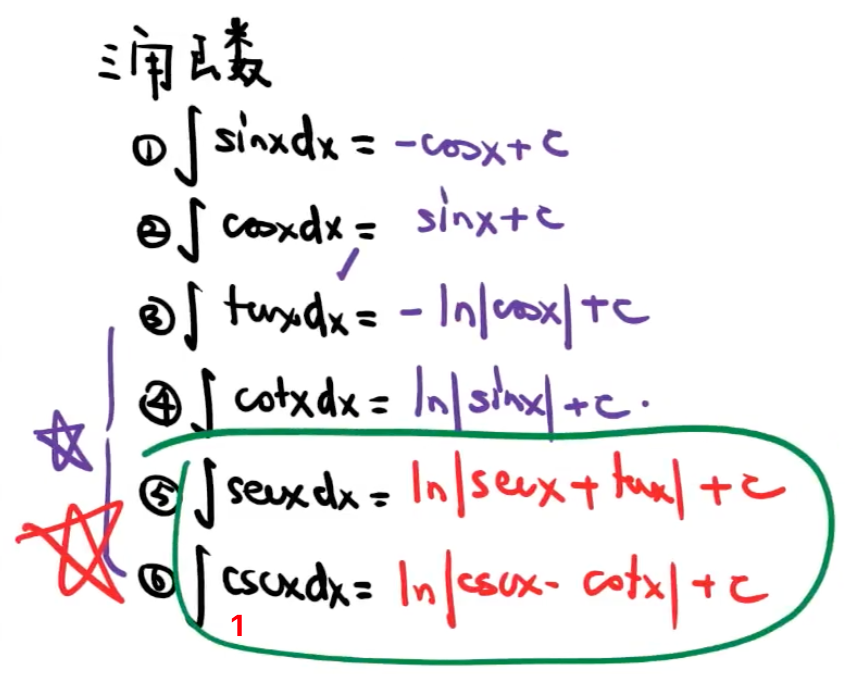 三角函数
① ∫ sinxdx = -cosx+c
② ∫ cosxdx = sinx+c
③ ∫ tanxdx = - ln|cosx|+c
④ ∫ cotxdx = ln|sinx|+c.
⑤ ∫ secxdx = ln|secx+tanx|+c
⑥ ∫ cscxdx = ln|cscx-cotx|+c
1